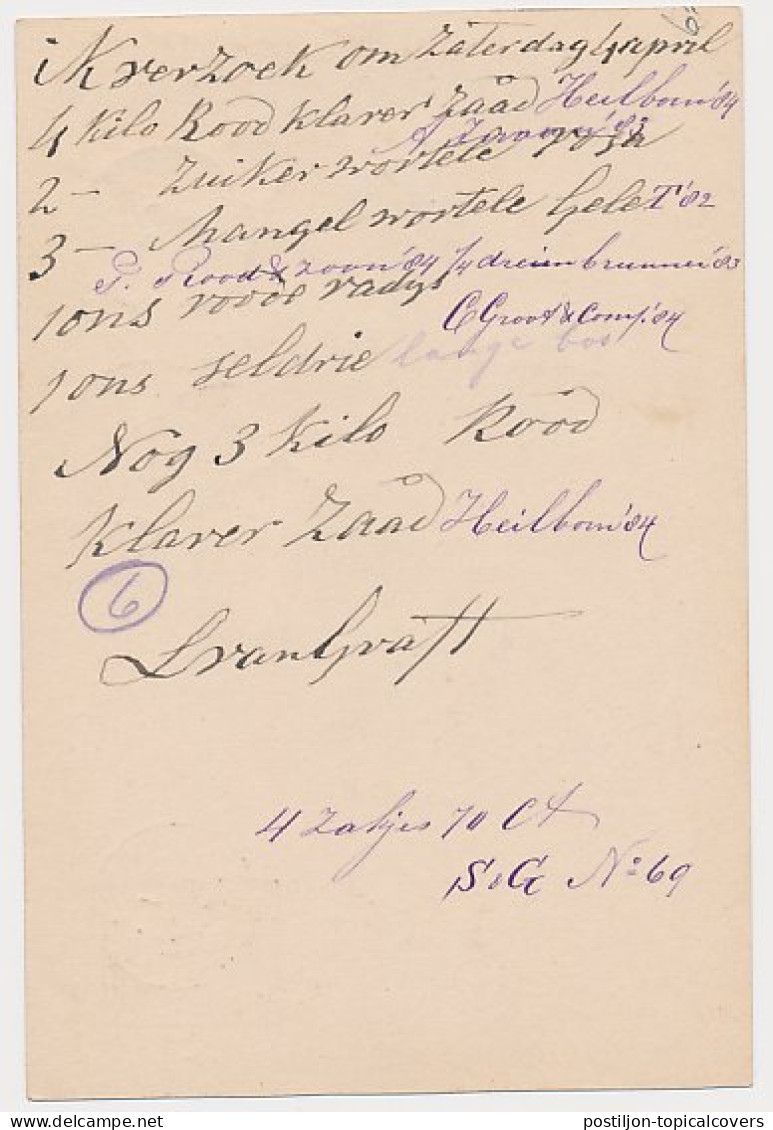 ik verzoek om Zaterdag 4 april
4 kilo Rood klaver zaad Heilbom '84
2 - Zuiker wortele roza
3 - Mangel wortele Gele T '82
P. Rood & zoon '84 1/4 dreienbrunner '83
1 ons roode radys
C Groot & Comp. '84
1 ons seldrie lange bos
Nog 3 kilo Rood
klaver zaad Heilbom '84
6
L van Graft
4 zakjes 70 Ct
S & G No 69
postiljon-topicalcovers